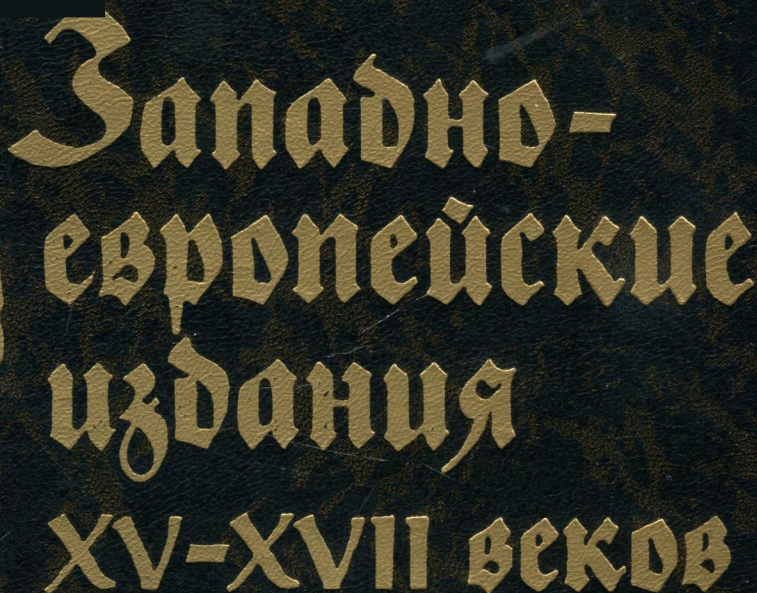 Западно-
европейские
издания
XV-XVII веков